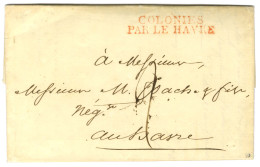 COLONIES
PAR LE HAVRE
à Messieurs,
Messieurs M. & fils,
Nég.
au havre